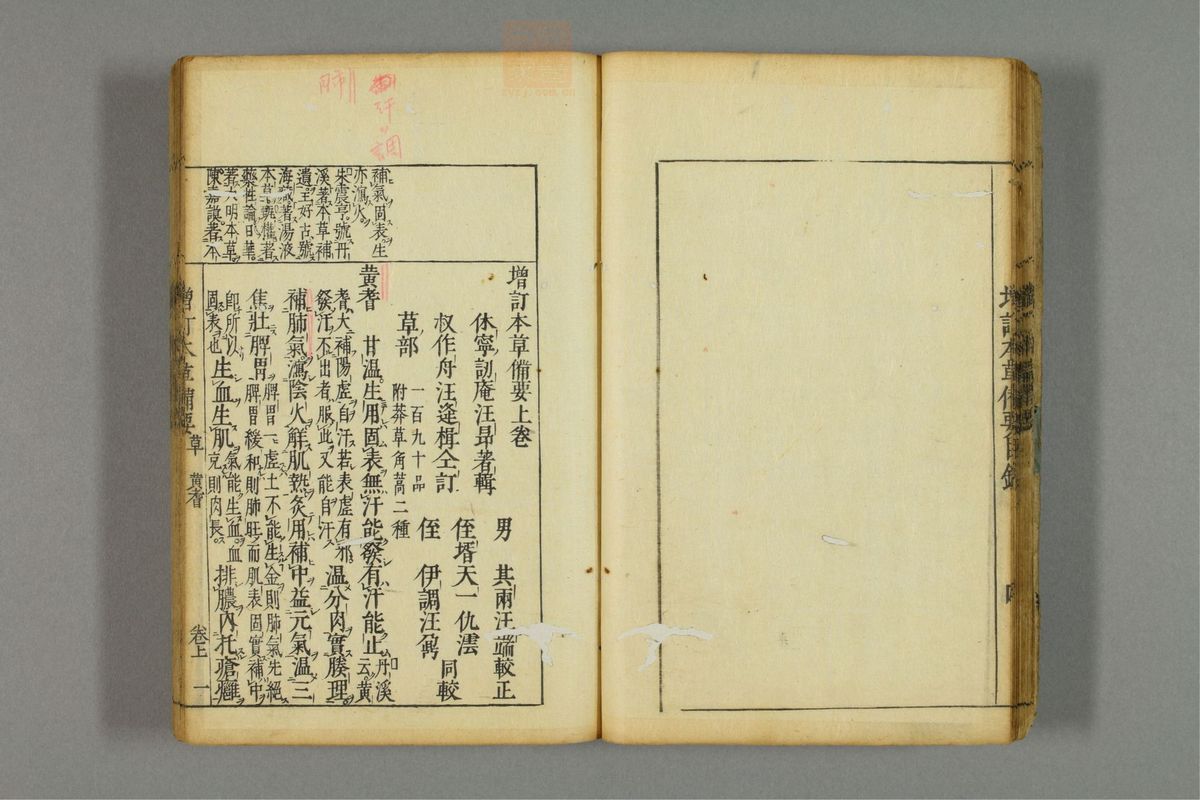 増訂本草備要目錄
四
増訂本草備要上卷
休寧訒庵汪昂著輯
叔作舟汪逢楫仝訂
男 其兩汪端較正
侄壻天一仇澐
侄 伊調汪
同較
草部 一百九十品
附莽草角蒿二種
黃耆 甘温生用固表無汗能發有汗能止 丹溪云黃
耆大補陽虛自汗若表虛有邪
發汗不出者服此又能自汗 温分肉實腠理
補肺氣瀉陰火解肌熱炙用補中益元氣温三
焦壯脾胃 脾胃一虛土不能生金則肺氣先絕
脾胃緩和則肺旺而肌表固實補中
卽所以
固表也 生血生肌 氣能生血血
充則肉長 排膿內托瘡癰
補氣固表生
亦瀉火
朱震亨號丹
溪著本草補
遺王好古號
海藏著湯液
本草甄權著
藥性論日華
著大明本草
陳嘉謨著本
調
汗
肺
増訂本草備要
草 黃耆
卷上 一